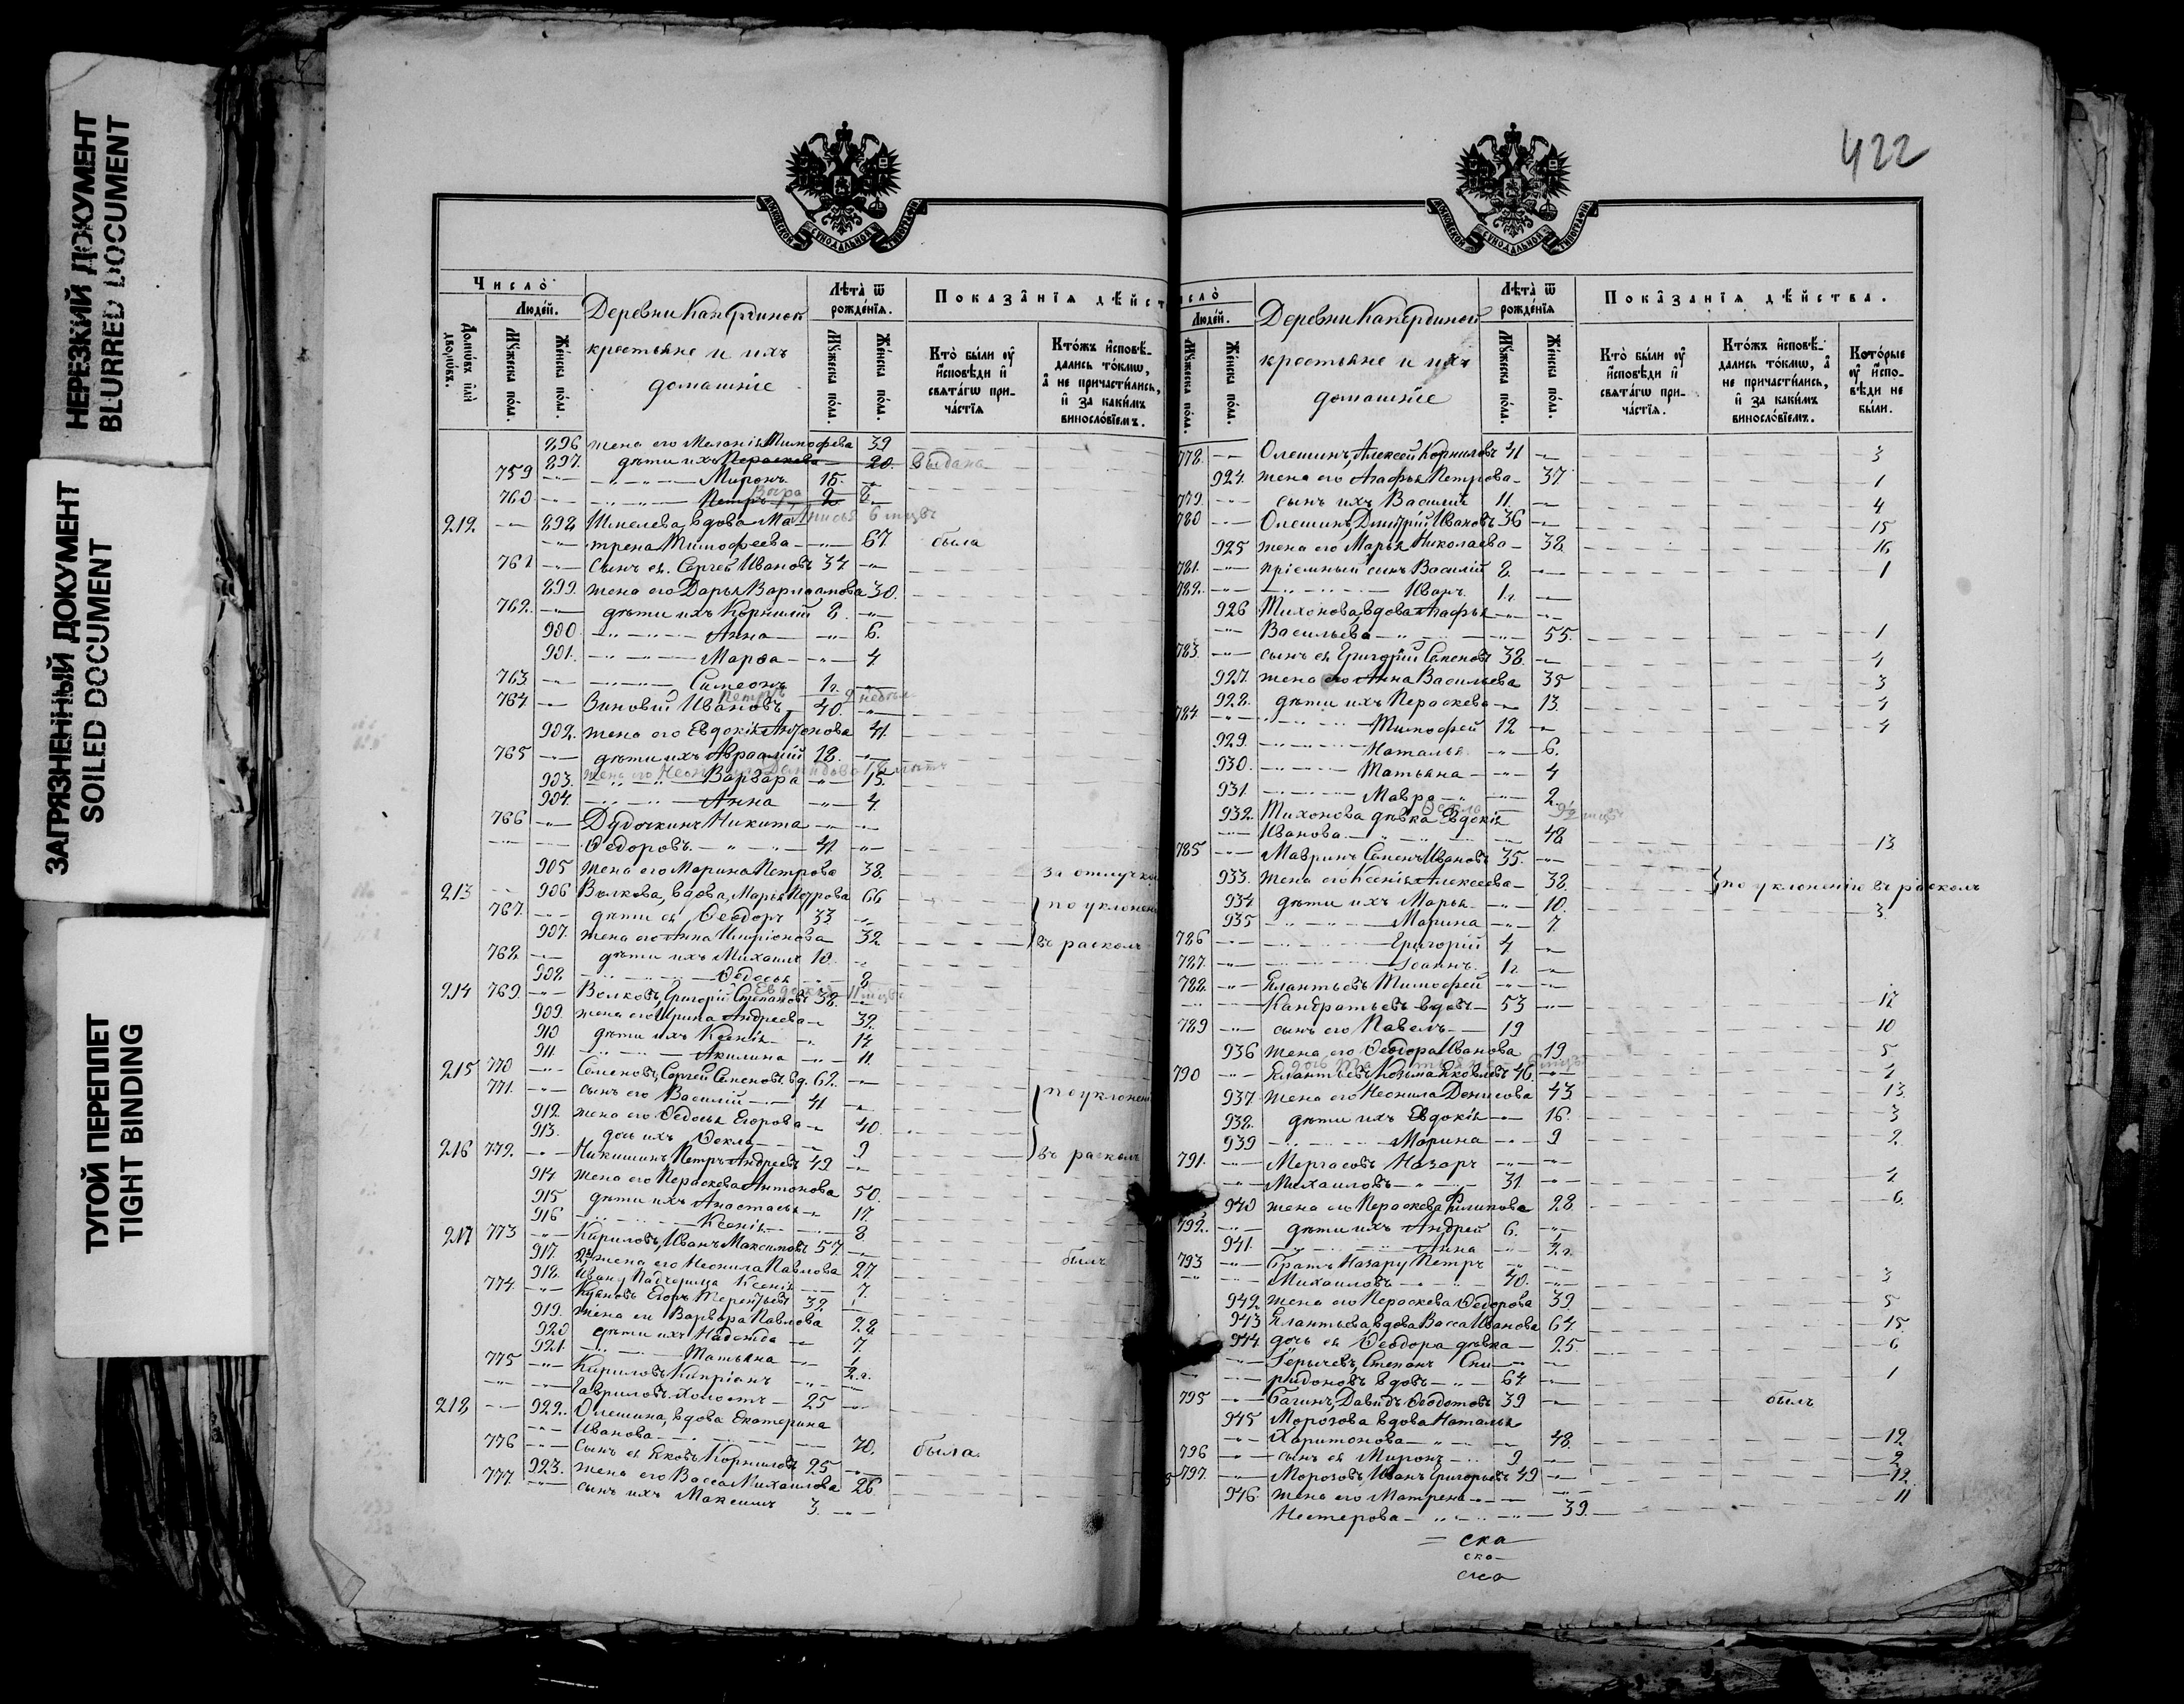 НЕРЕЗКИЙ ДОКУМЕНТ
BLURRED DOCUMENT
ЗАГРЯЗНЕННЫЙ ДОКУМЕНТ
SOILED DOCUMENT
ТУГОЙ ПЕРЕПЛЕТ
TIGHT BINDING
МОСКОВСКОЙ СУНОДАЛЬНОЙ ТИПОГРАФІИ
Число̀
Людей.
Домѡвъ или дворѡвъ.
Мꙋжеска пола.
Женска пола.
Деревни Какердиной
крестьяне и ихъ
домашніе
Лѣта ѿ рожденїѧ.
Мꙋжеска пола.
Женска пола.
Показанїѧ дѣйст
Кто были ᲂу҆ исповѣди и свѧтагѡ причастїѧ
Ктожъ исповѣдались токмѡ, а не причастились, и за какимъ винословїемъ.
896 жена его Меланія Тимофѣева 39
897. дѣти ихъ Параскева 20. выдана
759 Миронъ. 15.
760 Петръ Вѣра 2 8
212. 898 Шмелева, вдова Ма-
трена Тимофеева 67 была
761 Сынъ ея. Сергей Ивановъ 34
899. жена его Дарья Варлаамова 30.
762. дѣти ихъ Корнилий 8.
900 Анна 6.
901. Марѳа 4
763. Симеонъ 1 г.
764 Зиновій Ивановъ 40
902. жена его Евдокія Антонова 41
765 дѣти ихъ Авраамій 18.
903. Варвара 15.
904. Анна 4.
766 Дудочкинъ Никита
Ѳедоровъ. 41
905 жена его Марина Петрова 38. за отлучк
213 906 Волкова, вдова, Марья Петрова 66
767. дѣти ея, Ѳеодоръ 33 по уклонен
907. жена его Анна 32 въ расколъ
768 дѣти ихъ Михаилъ 10.
908 Ѳедосья 8
214 769. Волковъ, Григорій Степановъ 38.
909. жена его Ирина Андреева 39.
910 дѣти ихъ Ксенія 14
911. Акилина 11.
215 770 Семеновъ, Сергей Семеновъ вд. 62.
771. сынъ его Василій 41 по уклонені
912. жена его Ѳедосья Егорова 40.
913. дочь ихъ Ѳекла 9
216 772. Никишинъ Петръ Андреевъ 49 въ расколъ
914 жена его Пераскева Антонова 50.
915 дѣти ихъ Анастасья 17.
916 Ксенія 8
217 773 Кириловъ, Иванъ Максимовъ 57.
917. жена его Неонила Павлова 27 былъ
918. Ивану Падчерица Ксенія 7.
774. Егоръ Терентьевъ 32.
919. жена ево Варвара Павлова 28
920 дѣти ихъ Надежда 7.
921. Татьяна
775 Кириловъ Кипріанъ
Гавриловъ. холостъ 25
218, 922. Олешина, вдова Екатерина
Иванова 70. была.
776 Сынъ ея Яковъ Корниловъ 25
923. жена его Васса Михаилова 26
777. сынъ ихъ Максимъ 3.
422
МОСКОВСКОЙ СУНОДАЛЬНОЙ ТИПОГРАФІИ
исло̀
Людей.
Мꙋжеска пола.
Женска пола.
Деревни Какердиной
крестьяне и ихъ
домашніе
Лѣта ѿ рожденїѧ.
Мꙋжеска пола.
Женска пола.
Показанїѧ дѣйства.
Кто были ᲂу҆ исповѣди и свѧтагѡ причастїѧ.
Ктожъ исповѣдались токмѡ, а не причастились, и за какимъ винословїемъ.
Которые ᲂу҆ исповѣди не были.
778. Олешинъ, Алексей Корниловъ 41 3
924. жена его Агафья Петрова 37 1
779. сынъ ихъ Василий 11. 4
780 Олешинъ, Дмитрій Ивановъ 36 15
925 жена его Марья Николаева 38 16
781. пріемный сынъ Василій 8. 1
782. Иванъ 1 г.
926 Тихонова, вдова Агафья
Васильева 55. 1
783. сынъ ея Григорій Семеновъ 38. 4
927. жена его Анна Васильева 35 3
928. дѣти ихъ Пераскева 13. 4
784. Тимофей 12 4
929. Наталья 6.
930. Татьяна 4
931. Мавра 2.
932. Тихонова дѣвка Евдокія
Иванова 48 13
785 Мавринъ Семенъ Ивановъ 35.
933. жена его Ксенія Алексеева 38. по уклоненію въ расколъ
934. дѣти ихъ Марья 10. 3.
935 Марина 7.
786 Григорій 4
787. Іоаннъ. 1 г.
788. Елантьевъ Тимофей
Кандратьевъ вдовъ 53 12
789 сынъ его Павелъ 19 10
936 жена его Ѳеодора Иванова 19 5
790 Елантьевъ Козьма Яковлевъ 46.
937. жена его Неонила Денисова 43 13.
938. дѣти ихъ Евдокія 16. 3
939 Марина 9 2
791. Мергасовъ Назаръ
Михаиловъ 31.
940 жена его Пераскева Филипова 28. 6
792. дѣти ихъ Андрей 6.
941. Анна
793 братъ Назару Петръ
Михаиловъ 40. 3
942. жена его Пераскева Ѳедорова 39. 5
943 Елантьева вдова Васса Иванова 64. 15
944. дочь ея Ѳеодора дѣвка 25. 6
Степанъ Спи-
ридоновъ вдовъ 64. 1
795 Багинъ, Давидъ Ѳеодотовъ 39 былъ
945 Морозова вдова Наталья
Харитонова 48. 12
796 сынъ ея Миронъ 9 2
797. Морозовъ, Иванъ Григорьевъ 49 12.
946 жена его Матрена 11
Нестерова 39.
ска
ска
ска